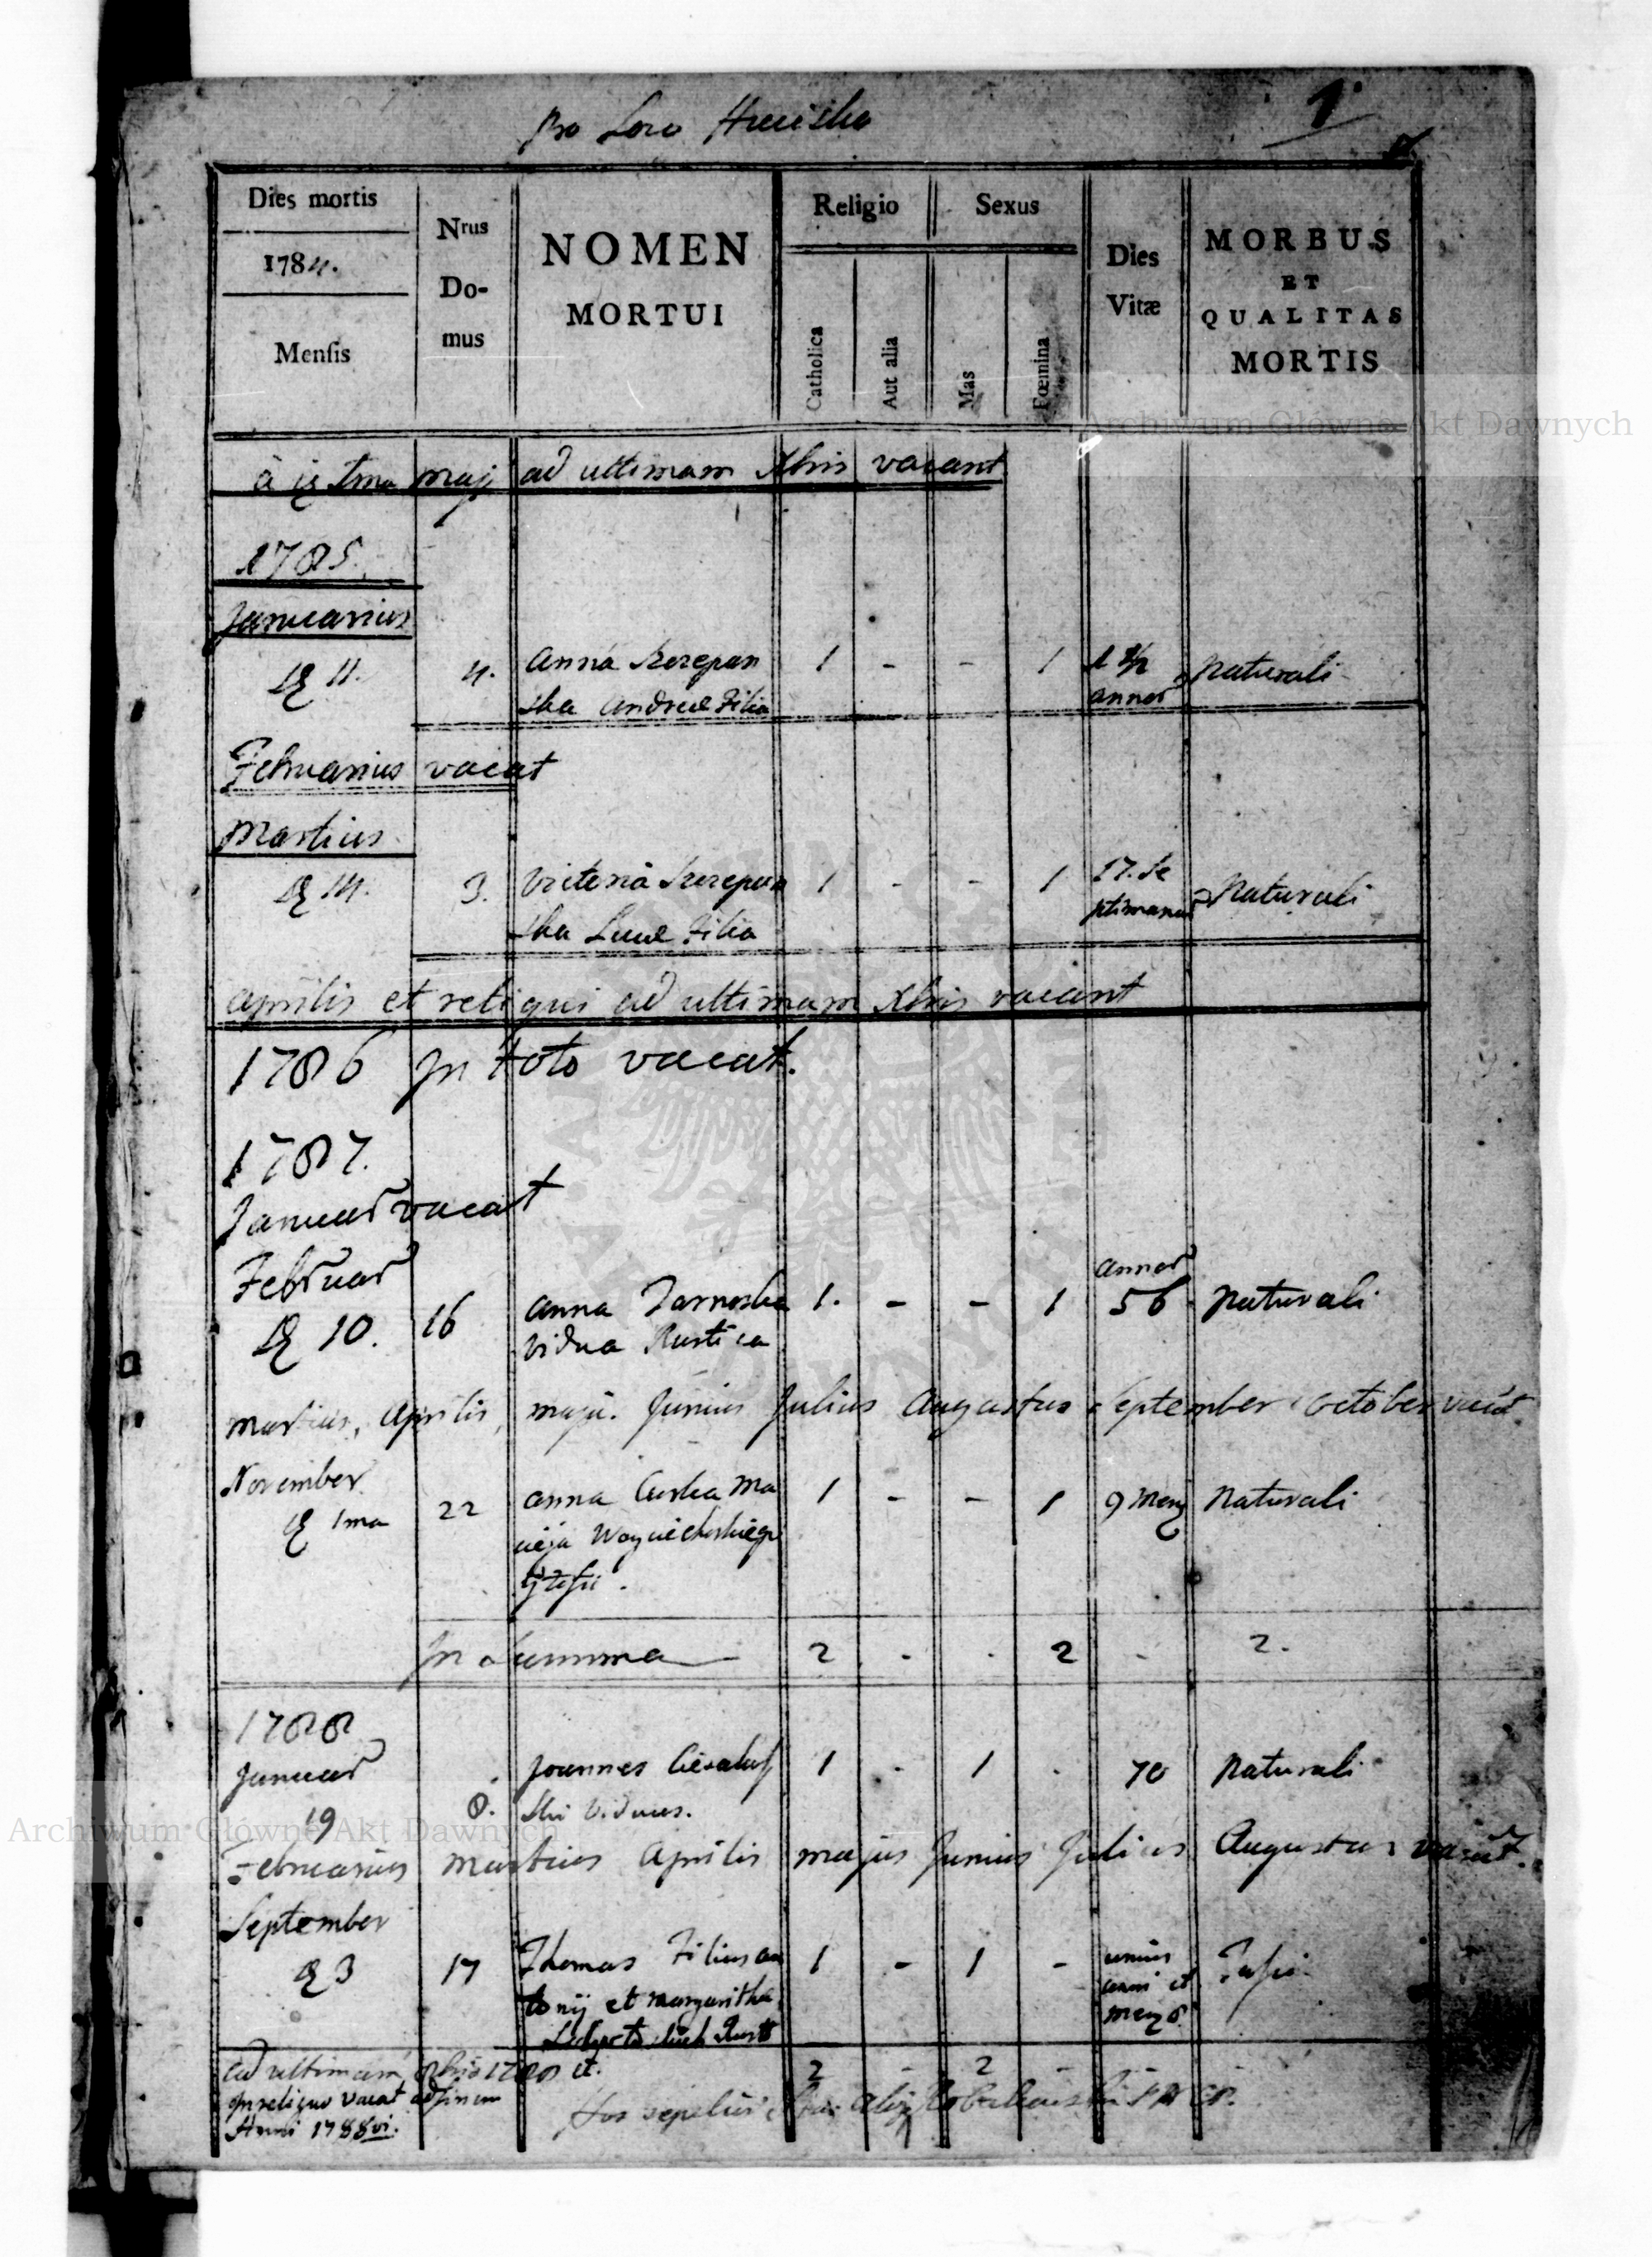 Pro Loco
1.
Dies mortis
1784.
Mensis
Nrus
Do-
mus
NOMEN
MORTUI
Religio
Sexus
Catholica
Aut alia
Mas
Fœmina
Dies
Vitæ
MORBUS
ET
QUALITAS
MORTIS
Archiwum Główne Akt Dawnych
Maj ad ultimam Xbris vacant
1785.
Januarius
11. 4. Anna Szczepan 1 - - 1 1 1/2 Naturali
ska Andreæ Filia annor
Februarius vacat
Martius
14. 3. Victoria Szczepan 1 - - 1 17. Se Naturali
ska Lucæ Filia ptimanar
Aprilis et reliqui ad ultimam Xbris vacant
1786 In toto vacat.
1787.
Januar vacat
Februar annor
10. 16 Anna Tarnoska 1. - - 1 56 Naturali
Vidua Rustica
Martius, Aprilis, Maju. Junius Julius Augustus September October vacãt
November
1ma 22 Anna Curka Ma 1 - - 1 9 Menz Naturali
cieja Woyciechoskiego
In Summa 2 - . 2 - 2.
1788
Januar Joannes 1 - 1 - 70 Naturali
19 8. ski Viduus.
Archiwum Główne Akt Dawnych
Februarius Martius Aprilis Majus Junius Julius Augustus vacãt.
September
3 17 Thomas Filius An 1 - 1 - unius
tonij et Margaritha anni et
menz 8
ad ultimam 1788 2 - 2 -
In reliquo vacat ad finem
Anni 1788vi.
Hos sepelivi